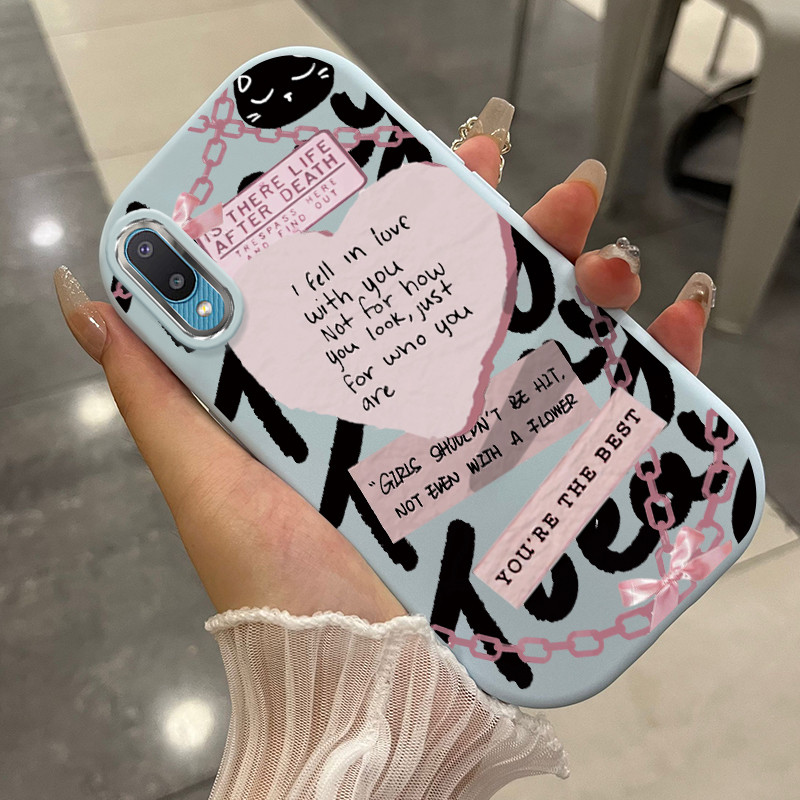 IS THERE LIFE
AFTER DEATH
TRESPASS HERE
AND FIND OUT
I fell in love
with you
Not for how
you look, just
for who you
are
"GIRLS SHOULDN'T BE HIT,
NOT EVEN WITH A FLOWER
YOU'RE THE BEST